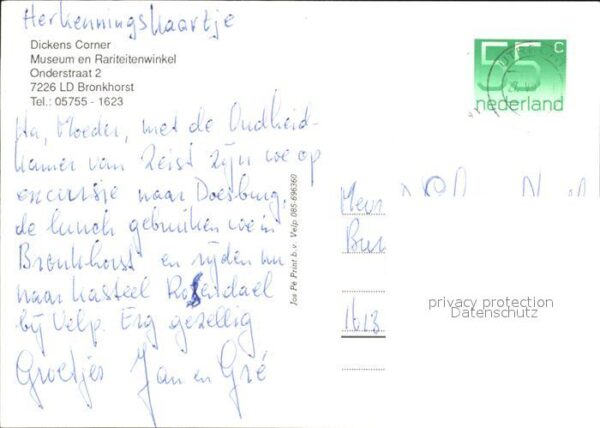 Herkenningskaartje
Dickens Corner
Museum en Rariteitenwinkel
Onderstraat 2
7226 LD Bronkhorst
Tel.: 05755 - 1623
55 c
nederland
Ha, Moeder, met de Oudheid-
kamer van Zeist zijn we op
excursie naar Doesburg.
de lunch gebruiken we in
Bronkhorst en rijden nu
naar kasteel Rosendael
bij Velp. Erg gezellig
Groetjes Jan en Gré
Jos Pé Print b.v. Velp 085-696360
Mevr
1613
privacy protection
Datenschutz